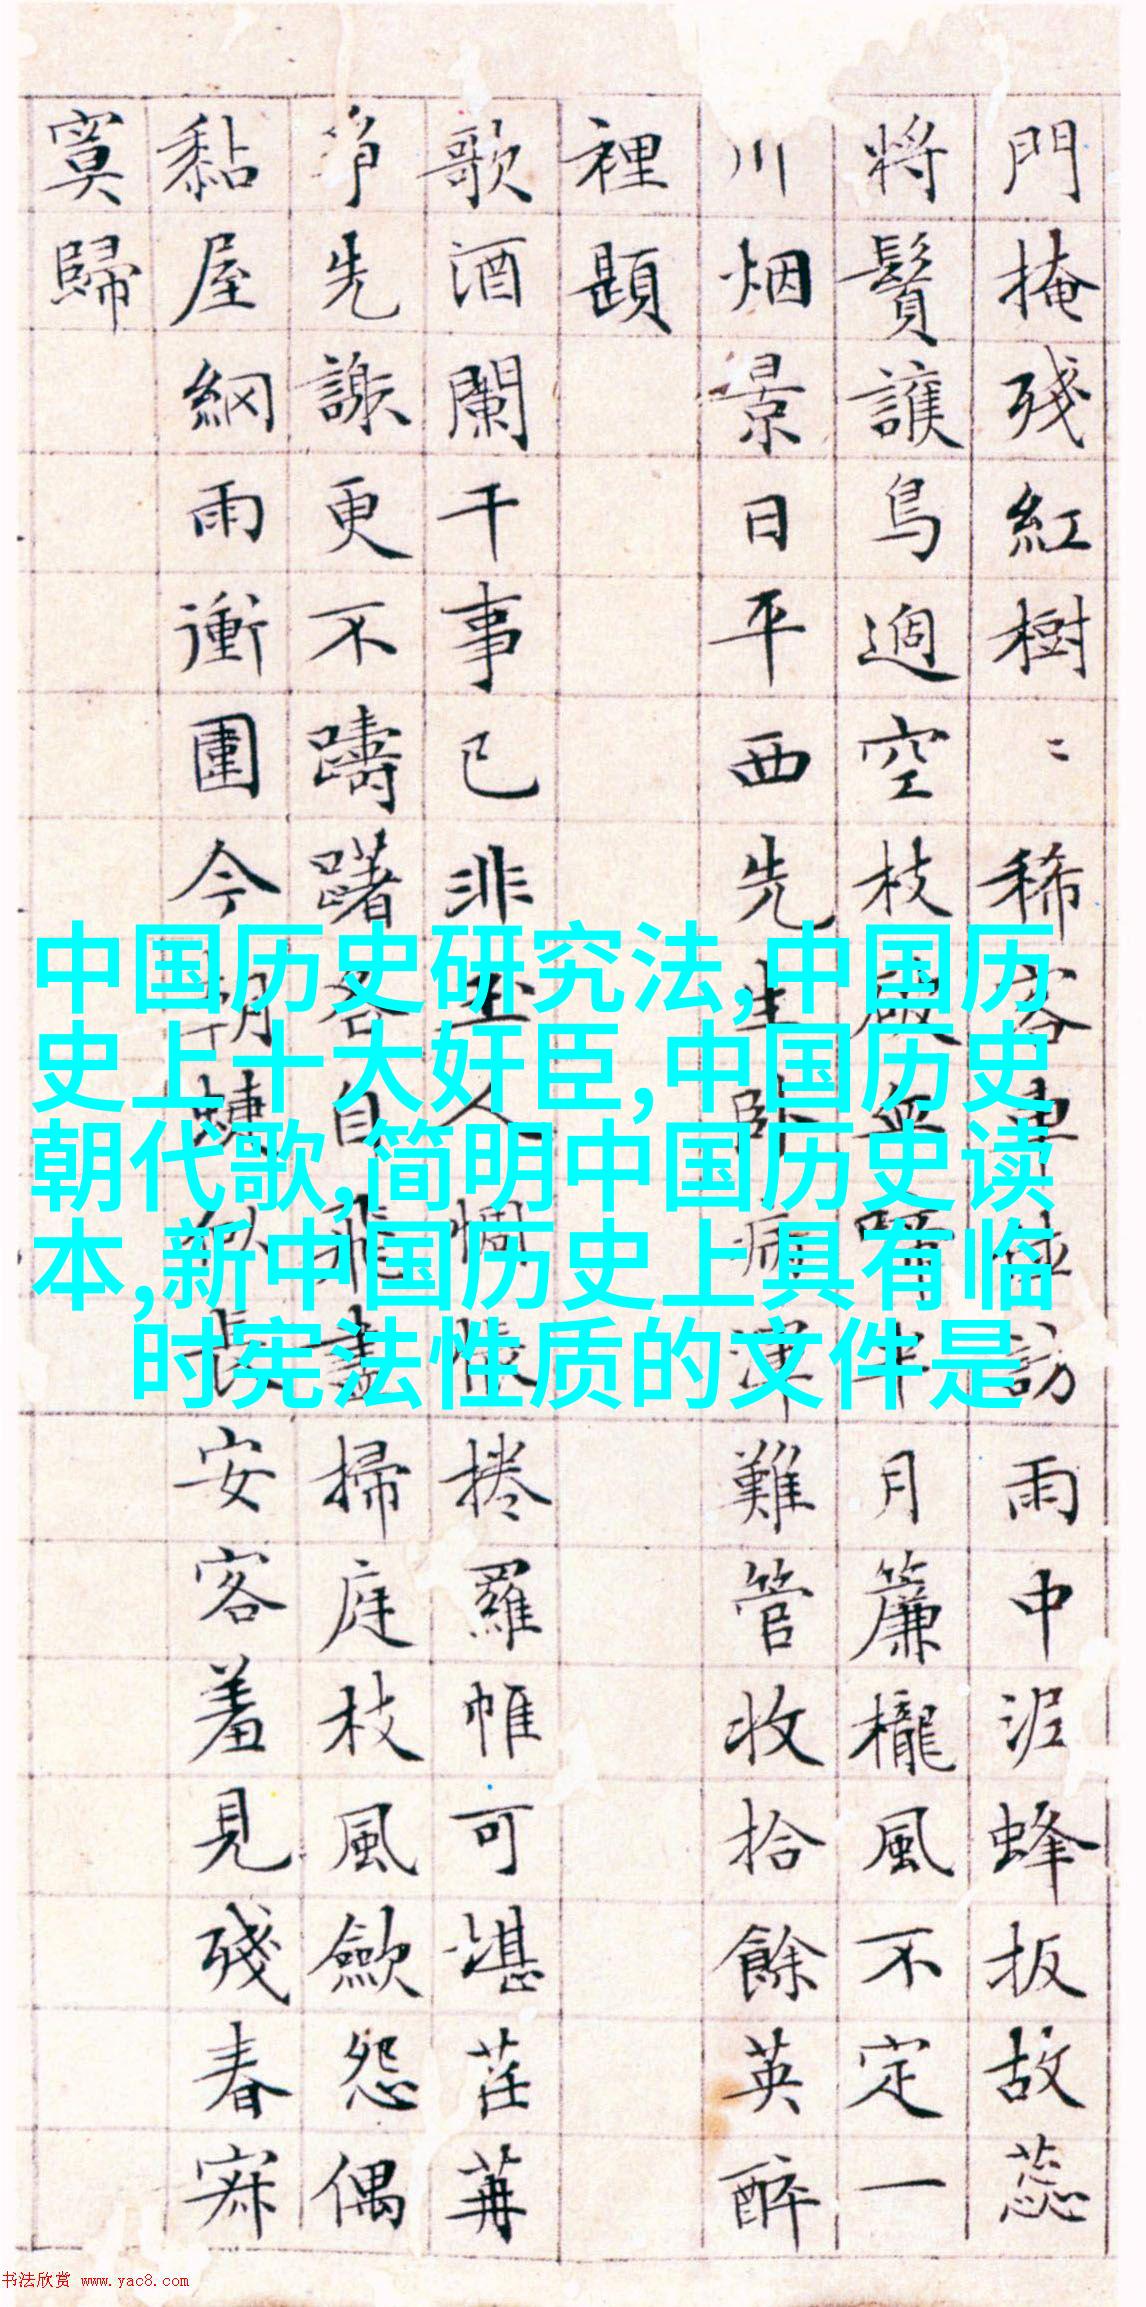 門掩殘紅樹〻稀客車
訪雨中泥蜂扳故蕊
將鬢護鳥過空枝
半月簾櫳風不定一
川烟景日平西先生卧病
津難管收拾餘英醉
裡題
歌酒闌干事已非玉人惆悵
捲羅帷可堪茌苒
爭先謝更不躊躇各自飛
畫掃庭枝風歛怨偶
黏屋網雨衝圍今朝
長安客羞見殘春寂
寞歸
中国历史研究法,中国历
史上十大奸臣,中国历史
朝代歌,简明中国历史读
本,新中国历史上具有临
时宪法性质的文件是
书法欣赏 www.yac8.com